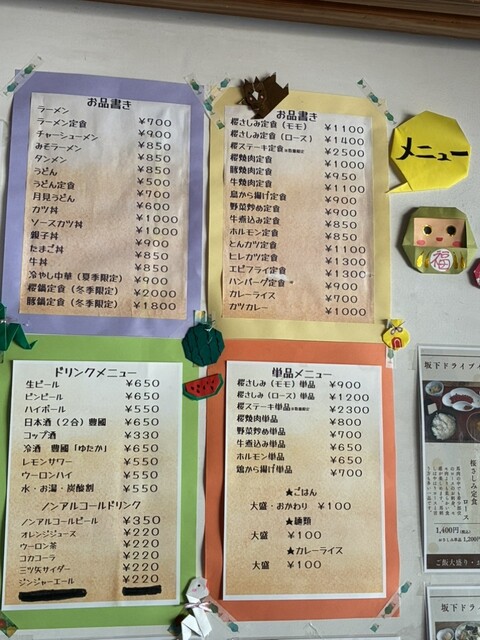 お品書き
ラーメン ¥700
ラーメン定食 ¥900
チャーシューメン ¥850
みそラーメン ¥850
タンメン ¥850
うどん ¥500
うどん定食 ¥700
月見うどん ¥600
カツ丼 ¥1000
ソースカツ丼 ¥1000
親子丼 ¥900
たまご丼 ¥850
牛丼 ¥850
冷やし中華（夏季限定） ¥900
桜鍋定食（冬季限定） ¥2000
豚鍋定食（冬季限定） ¥1800
お品書き
桜さしみ定食（モモ） ¥1100
桜さしみ定食（ロース） ¥1400
桜ステーキ定食 ¥2500
桜焼肉定食 ¥1000
豚焼肉定食 ¥950
牛焼肉定食 ¥1100
鳥から揚げ定食 ¥900
野菜炒め定食 ¥900
牛煮込み定食 ¥850
ホルモン定食 ¥850
とんカツ定食 ¥1100
ヒレカツ定食 ¥1300
エビフライ定食 ¥1300
ハンバーグ定食 ¥900
カレーライス ¥700
カツカレー ¥1000
メニュー
福
ドリンクメニュー
生ビール ¥650
ビンビール ¥650
ハイボール ¥550
日本酒（2合）豊國 ¥650
コップ酒 ¥330
冷酒 豊國「ゆたか」 ¥650
レモンサワー ¥550
ウーロンハイ ¥550
水・お湯・炭酸割 ¥550
ノンアルコールドリンク
ノンアルコールビール ¥350
オレンジジュース ¥220
ウーロン茶 ¥220
コカコーラ ¥220
三ツ矢サイダー ¥220
ジンジャーエール ¥220
単品メニュー
桜さしみ（モモ）単品 ¥900
桜さしみ（ロース）単品 ¥1200
桜ステーキ単品 ¥2300
桜焼肉単品 ¥800
野菜炒め単品 ¥700
牛煮込み単品 ¥650
ホルモン単品 ¥650
鶏から揚げ単品 ¥700
★ごはん
大盛・おかわり ¥100
★麺類
大盛 ¥100
★カレーライス
大盛 ¥100
坂下ドライブイ
桜さしみ定食
ロース
1,400円(税込)
ご飯大盛り・お
坂下ドライブ